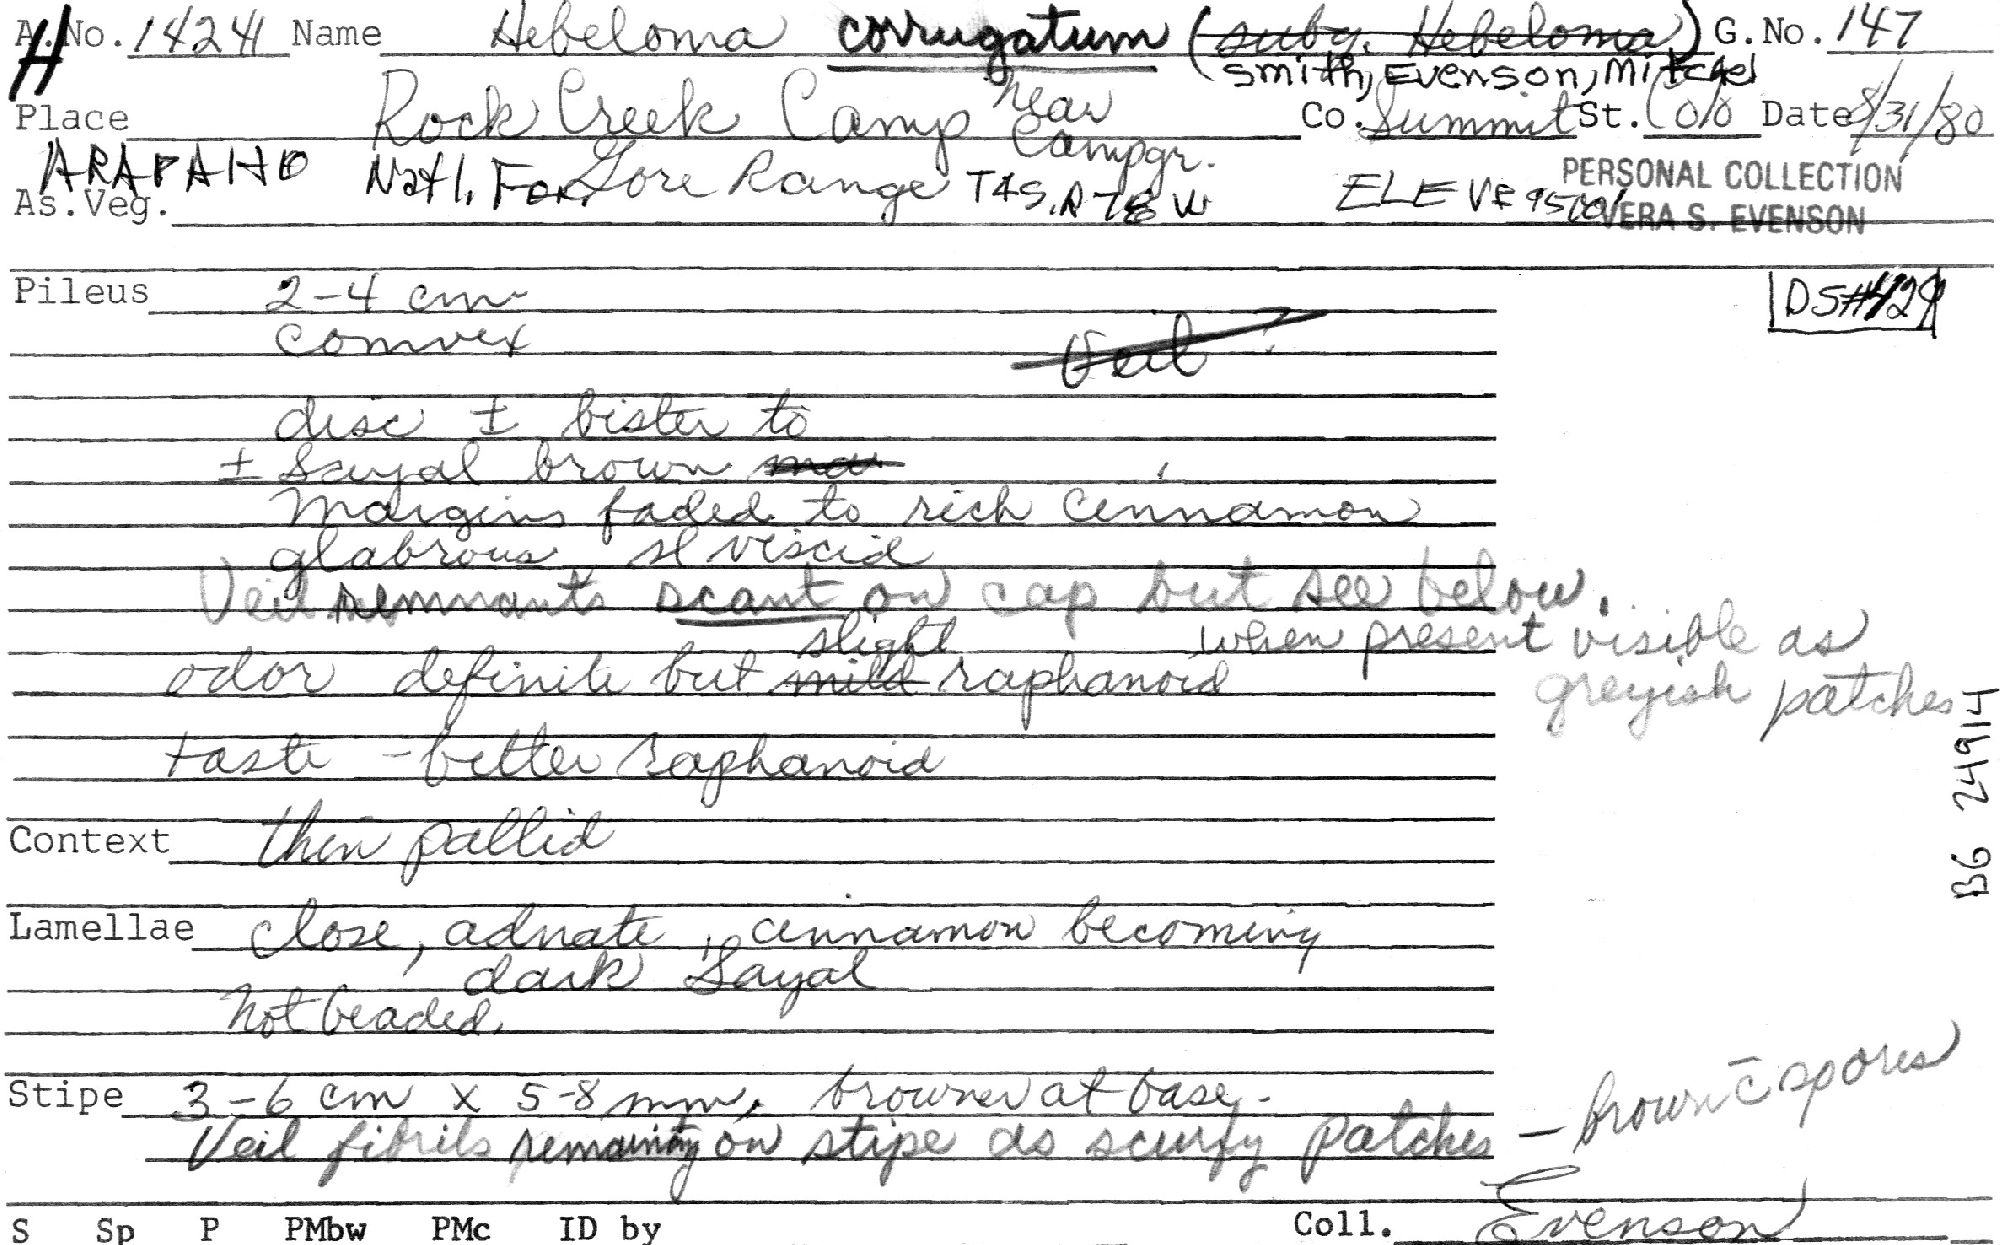 A.No. 1424 Name Hebeloma corrugatum (subg. Hebeloma) G.No. 147
H
Smith, Evenson, Mitchel
Place Rock Creek Camp near Campgr. Co. Summit St. Colo Date 8/31/80
ARAPAHO Natl. For. Gore Range T4S, R78W ELEV 9500'
As.Veg.
PERSONAL COLLECTION
VERA S. EVENSON
Pileus 2-4 cm
DS#429
convex
Veil ?
disc ± bister to
± Sayal brown ma
Margins faded to rich cinnamon
glabrous, sl viscid
Veil remnants scant on cap but see below.
when present visible as
greyish patches
odor definite but mild slight raphanoid
taste - bitter raphanoid
BG 24914
Context thin pallid
Lamellae close, adnate, cinnamon becoming
dark Sayal
Not beaded
Stipe 3-6 cm x 5-8 mm, browner at base.
Veil fibrils remaining on stipe as scurfy patches — brown c̄ spores
S Sp P PMbw PMc ID by Coll. Evenson